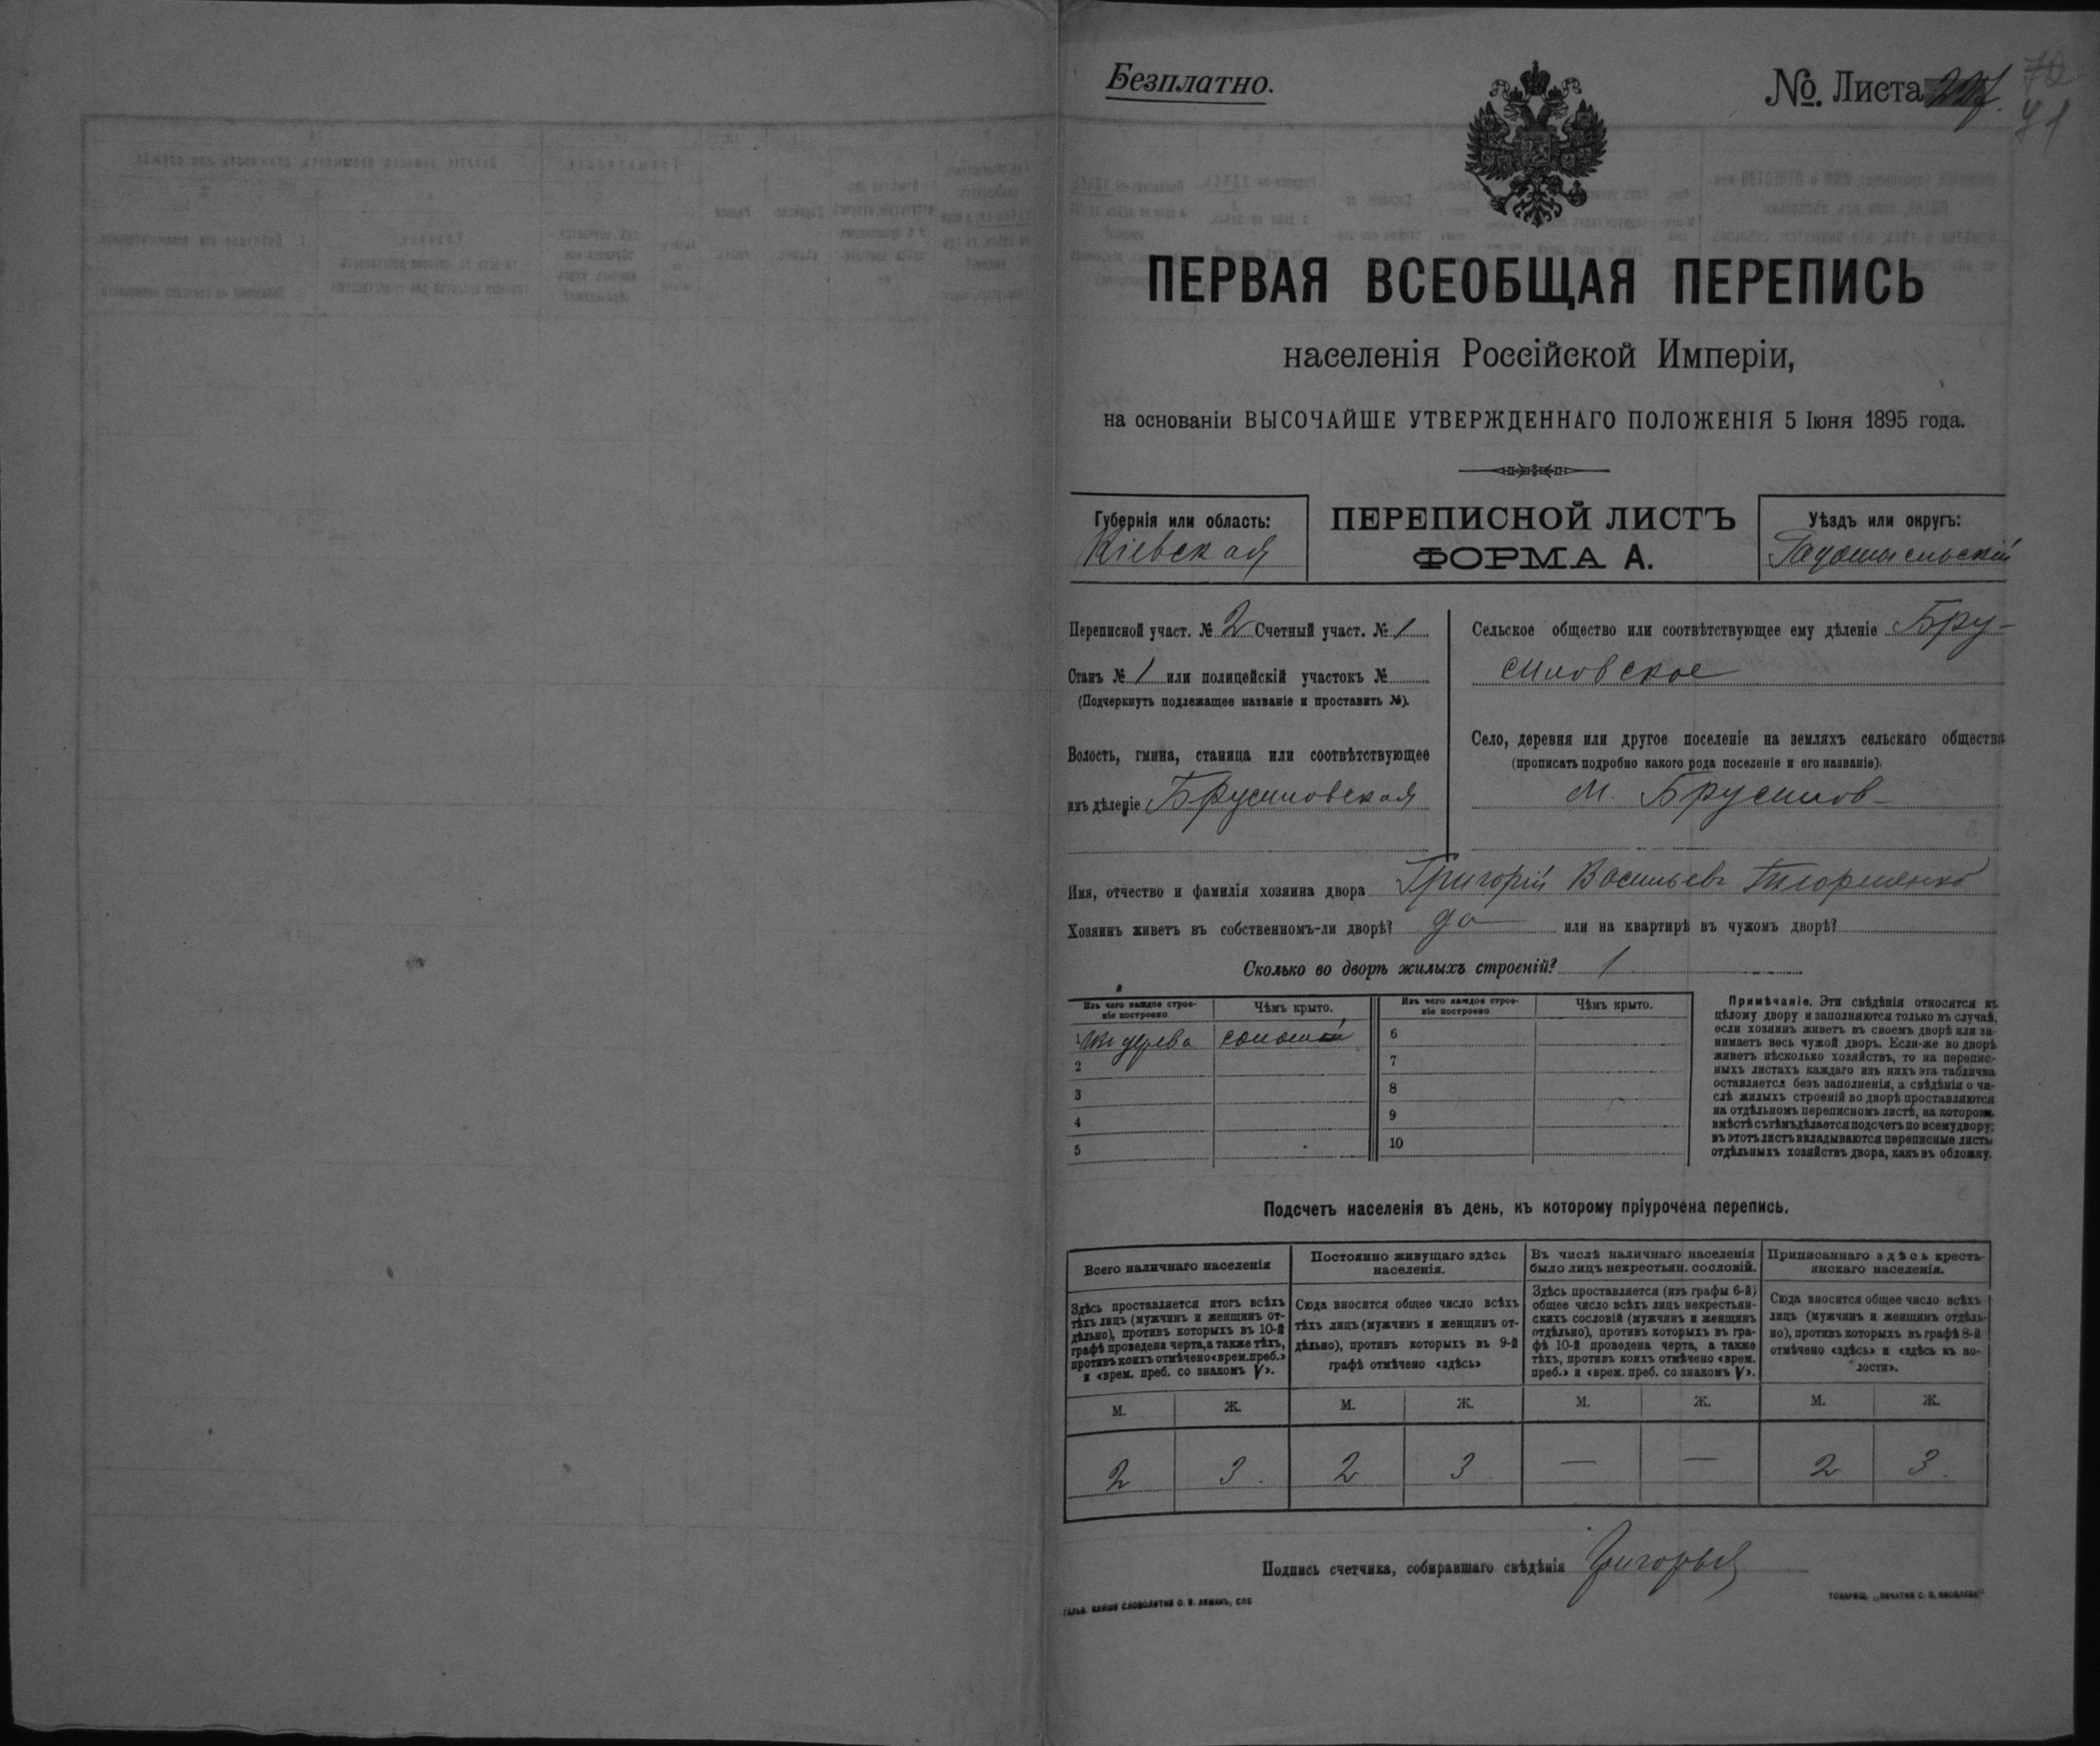 Безплатно.
№. Листа 227.
70
71
ПЕРВАЯ ВСЕОБЩАЯ ПЕРЕПИСЬ
населенія Россійской Имперіи,
на основаніи ВЫСОЧАЙШЕ УТВЕРЖДЕННАГО ПОЛОЖЕНІЯ 5 Іюня 1895 года.
Губернія или область:
Кіевская
ПЕРЕПИСНОЙ ЛИСТЪ
ФОРМА А.
Уѣздъ или округъ:
Радомысльскій
Переписной участ. № 2 Счетный участ. № 1
Станъ № 1 или полицейскій участокъ №
(Подчеркнуть подлежащее названіе и проставить №).
Волость, гмина, станица или соотвѣтствующее
имъ дѣленіе Брусиловская
Сельское общество или соотвѣтствующее ему дѣленіе Бру-
силовское
Село, деревня или другое поселеніе на земляхъ сельскаго общества
(прописать подробно какого рода поселеніе и его названіе).
м. Брусилов
Имя, отчество и фамилія хозяина двора Григорій Васильев
Хозяинъ живетъ въ собственномъ-ли дворѣ? да или на квартирѣ въ чужомъ дворѣ?
Сколько во дворѣ жилыхъ строеній? 1
Изъ чего каждое строе-
ніе построено
Чѣмъ крыто.
Изъ чего каждое строе-
ніе построено
Чѣмъ крыто.
1 изъ дерева соломой
2
3
4
5
6
7
8
9
10
Примѣчаніе. Эти свѣдѣнія относятся къ
цѣлому двору и заполняются только въ случаѣ,
если хозяинъ живетъ въ своемъ дворѣ или за-
нимаетъ весь чужой дворъ. Если-же во дворѣ
живетъ нѣсколько хозяйствъ, то на перепис-
ныхъ листахъ каждаго изъ нихъ эта табличка
оставляется безъ заполненія, а свѣдѣнія о чи-
слѣ жилыхъ строеній во дворѣ проставляются
на отдѣльномъ переписномъ листѣ, на которомъ
вмѣстѣ съ тѣмъ дѣлается подсчетъ по всему двору;
въ этотъ листъ вкладываются переписные листы
отдѣльныхъ хозяйствъ двора, какъ въ обложку.
Подсчетъ населенія въ день, къ которому пріурочена перепись.
Всего наличнаго населенія
Здѣсь проставляется итогъ всѣхъ
тѣхъ лицъ (мужчинъ и женщинъ от-
дѣльно), противъ которыхъ въ 10-й
графѣ проведена черта, а также тѣхъ,
противъ коихъ отмѣчено «врем. преб.»
и «врем. преб. со знакомъ V».
Постоянно живущаго здѣсь
населенія.
Сюда вносится общее число всѣхъ
тѣхъ лицъ (мужчинъ и женщинъ от-
дѣльно), противъ которыхъ въ 9-й
графѣ отмѣчено «здѣсь»
Въ числѣ наличнаго населенія
было лицъ некрестьян. сословій.
Здѣсь проставляется (изъ графы 6-й)
общее число всѣхъ лицъ некрестьян-
скихъ сословій (мужчинъ и женщинъ
отдѣльно), противъ которыхъ въ гра-
фѣ 10-й проведена черта, а также
тѣхъ, противъ коихъ отмѣчено «врем.
преб.» и «врем. преб. со знакомъ V».
Приписаннаго здѣсь кресть-
янскаго населенія.
Сюда вносится общее число всѣхъ
лицъ (мужчинъ и женщинъ отдѣль-
но), противъ которыхъ въ графѣ 8-й
отмѣчено «здѣсь» и «здѣсь въ во-
лости».
М. Ж. М. Ж. М. Ж. М. Ж.
2 3 2 3 — — 2 3
Подпись счетчика, собиравшаго свѣдѣнія
ГАЛЬВ. КЛИШЕ СЛОВОЛИТНИ О. И. ЛЕМАНЪ, СПБ
ТОВАРИЩ. „ПЕЧАТНЯ С. П. ЯКОВЛЕВА"